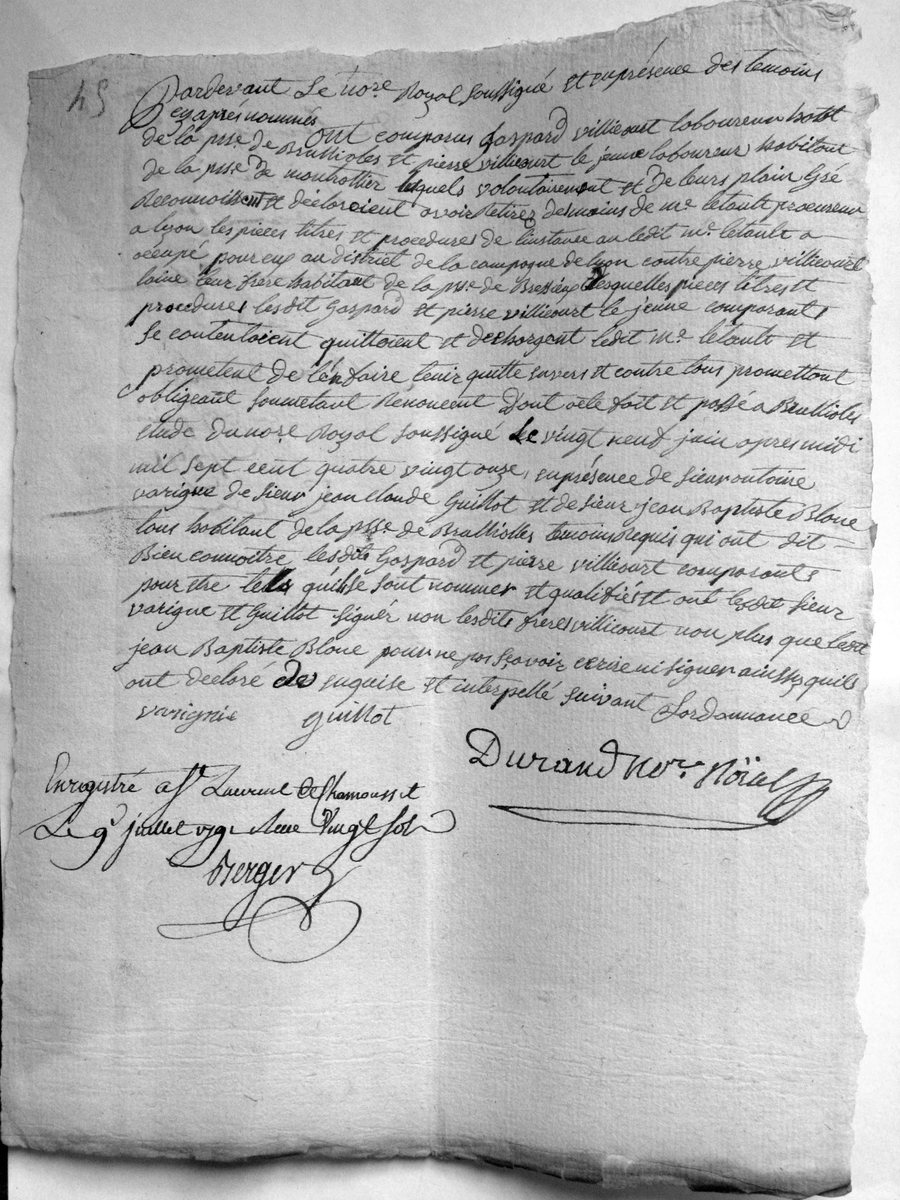 54
Pardevant Le nore Royal soussigné et enprésence des temoins
cyaprés nommés
ont comparus Gaspard villicourt laboureur habitt
de la psse de Brullioles et pierre villicourt le jeune laboureur habitant
de la psse de montrottier lesquels volontairement et de leurs plain Gré
Reconnoissent et déclaroient avoir Retirez desmains de me letault procureur
a lyon les pieces titres et procedures de linstance au ledit me. letault a
occupé pour eux au district de la campagne de lyon contre pierre villicourt
laine leur frere habitant de la psse de lesquelles pieces titres et
procedures lesdit Gaspard et pierre villicourt le jeune comparants
se contentoient quittoient et desborgent ledit me. letault et
prometent de l'en faire tenir quitte envers et contre tous promettant
obligeant soumetant Renoncent Dont acte fait et passé a Brullioles
etude du nore Royal soussigné Le vingt neuf juin apres midi
mil sept cent quatre vingt onze enprésence de sieur antoine
varigne de sieur jean claude Guillot et de sieur jean Baptiste Blanc
tous habitant de la psse de Brullioles temoins Requis qui ont dit
Bien connoitre lesdits Gaspard et pierre villicourt comparants
pour etre tels quilse sont nommer et qualifiés et ont lesdit sieur
varigne et Guillot signér non lesdits freres villicourt non plus que ledit
jean Baptiste Blanc pour ne pas savoir ecrire ni signer ainssy quils
ont declaré de enquise et interpellé suivant Lordonnance
varignie guillot
Durand Nore. Roïal
Enregistré a St. Laurent de Chamousset
Le 9 juillet 1791 Reçu Vingt sols
Berger